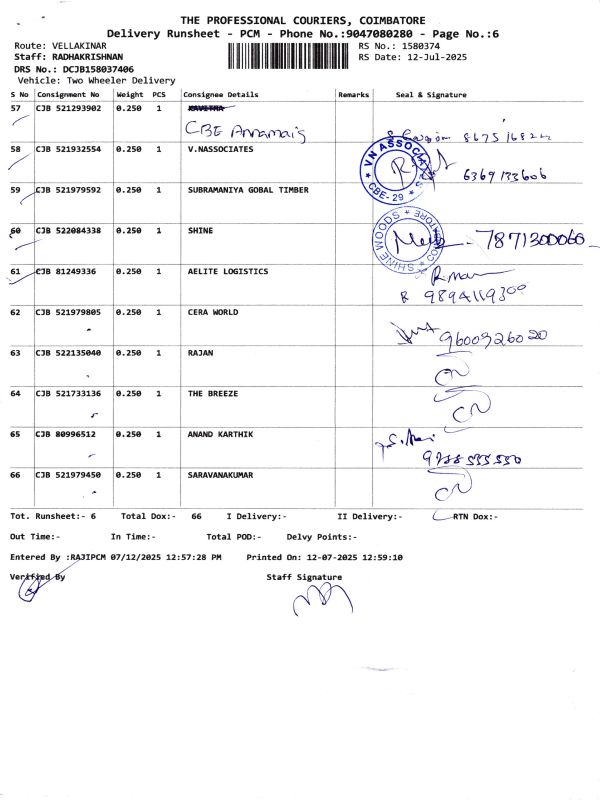 THE PROFESSIONAL COURIERS, COIMBATORE
Delivery Runsheet - PCM - Phone No.:9047080280 - Page No.:6
Route: VELLAKINAR RS No.: 1580374
Staff: RADHAKRISHNAN RS Date: 12-Jul-2025
DRS No.: DCJB158037406
Vehicle: Two Wheeler Delivery
S No Consignment No Weight PCS Consignee Details Remarks Seal & Signature
57 CJB 521293902 0.250 1 KAVETRA
CBE Annamais
58 CJB 521932554 0.250 1 V.NASSOCIATES
VN ASSOCIATES CBE-29
6369133606
59 CJB 521979592 0.250 1 SUBRAMANIYA GOBAL TIMBER
60 CJB 522084338 0.250 1 SHINE
SHINE MOODS COIMBATORE
7871300060
61 CJB 81249336 0.250 1 AELITE LOGISTICS
9894119300
62 CJB 521979805 0.250 1 CERA WORLD
9600326020
63 CJB 522135040 0.250 1 RAJAN
64 CJB 521733136 0.250 1 THE BREEZE
65 CJB 80996512 0.250 1 ANAND KARTHIK
66 CJB 521979450 0.250 1 SARAVANAKUMAR
Tot. Runsheet:- 6 Total Dox:- 66 I Delivery:- II Delivery:- RTN Dox:-
Out Time:- In Time:- Total POD:- Delvy Points:-
Entered By :RAJIPCM 07/12/2025 12:57:28 PM Printed On: 12-07-2025 12:59:10
Verified By Staff Signature